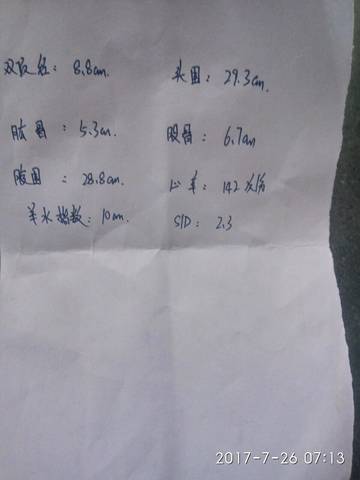 双顶径: 8.8cm. 头围: 29.3cm.
肱骨: 5.3cm. 股骨: 6.7cm
腹围: 28.8cm. 心率: 142次/分
羊水指数: 10cm. S/D: 2.3
2017-7-26 07:13